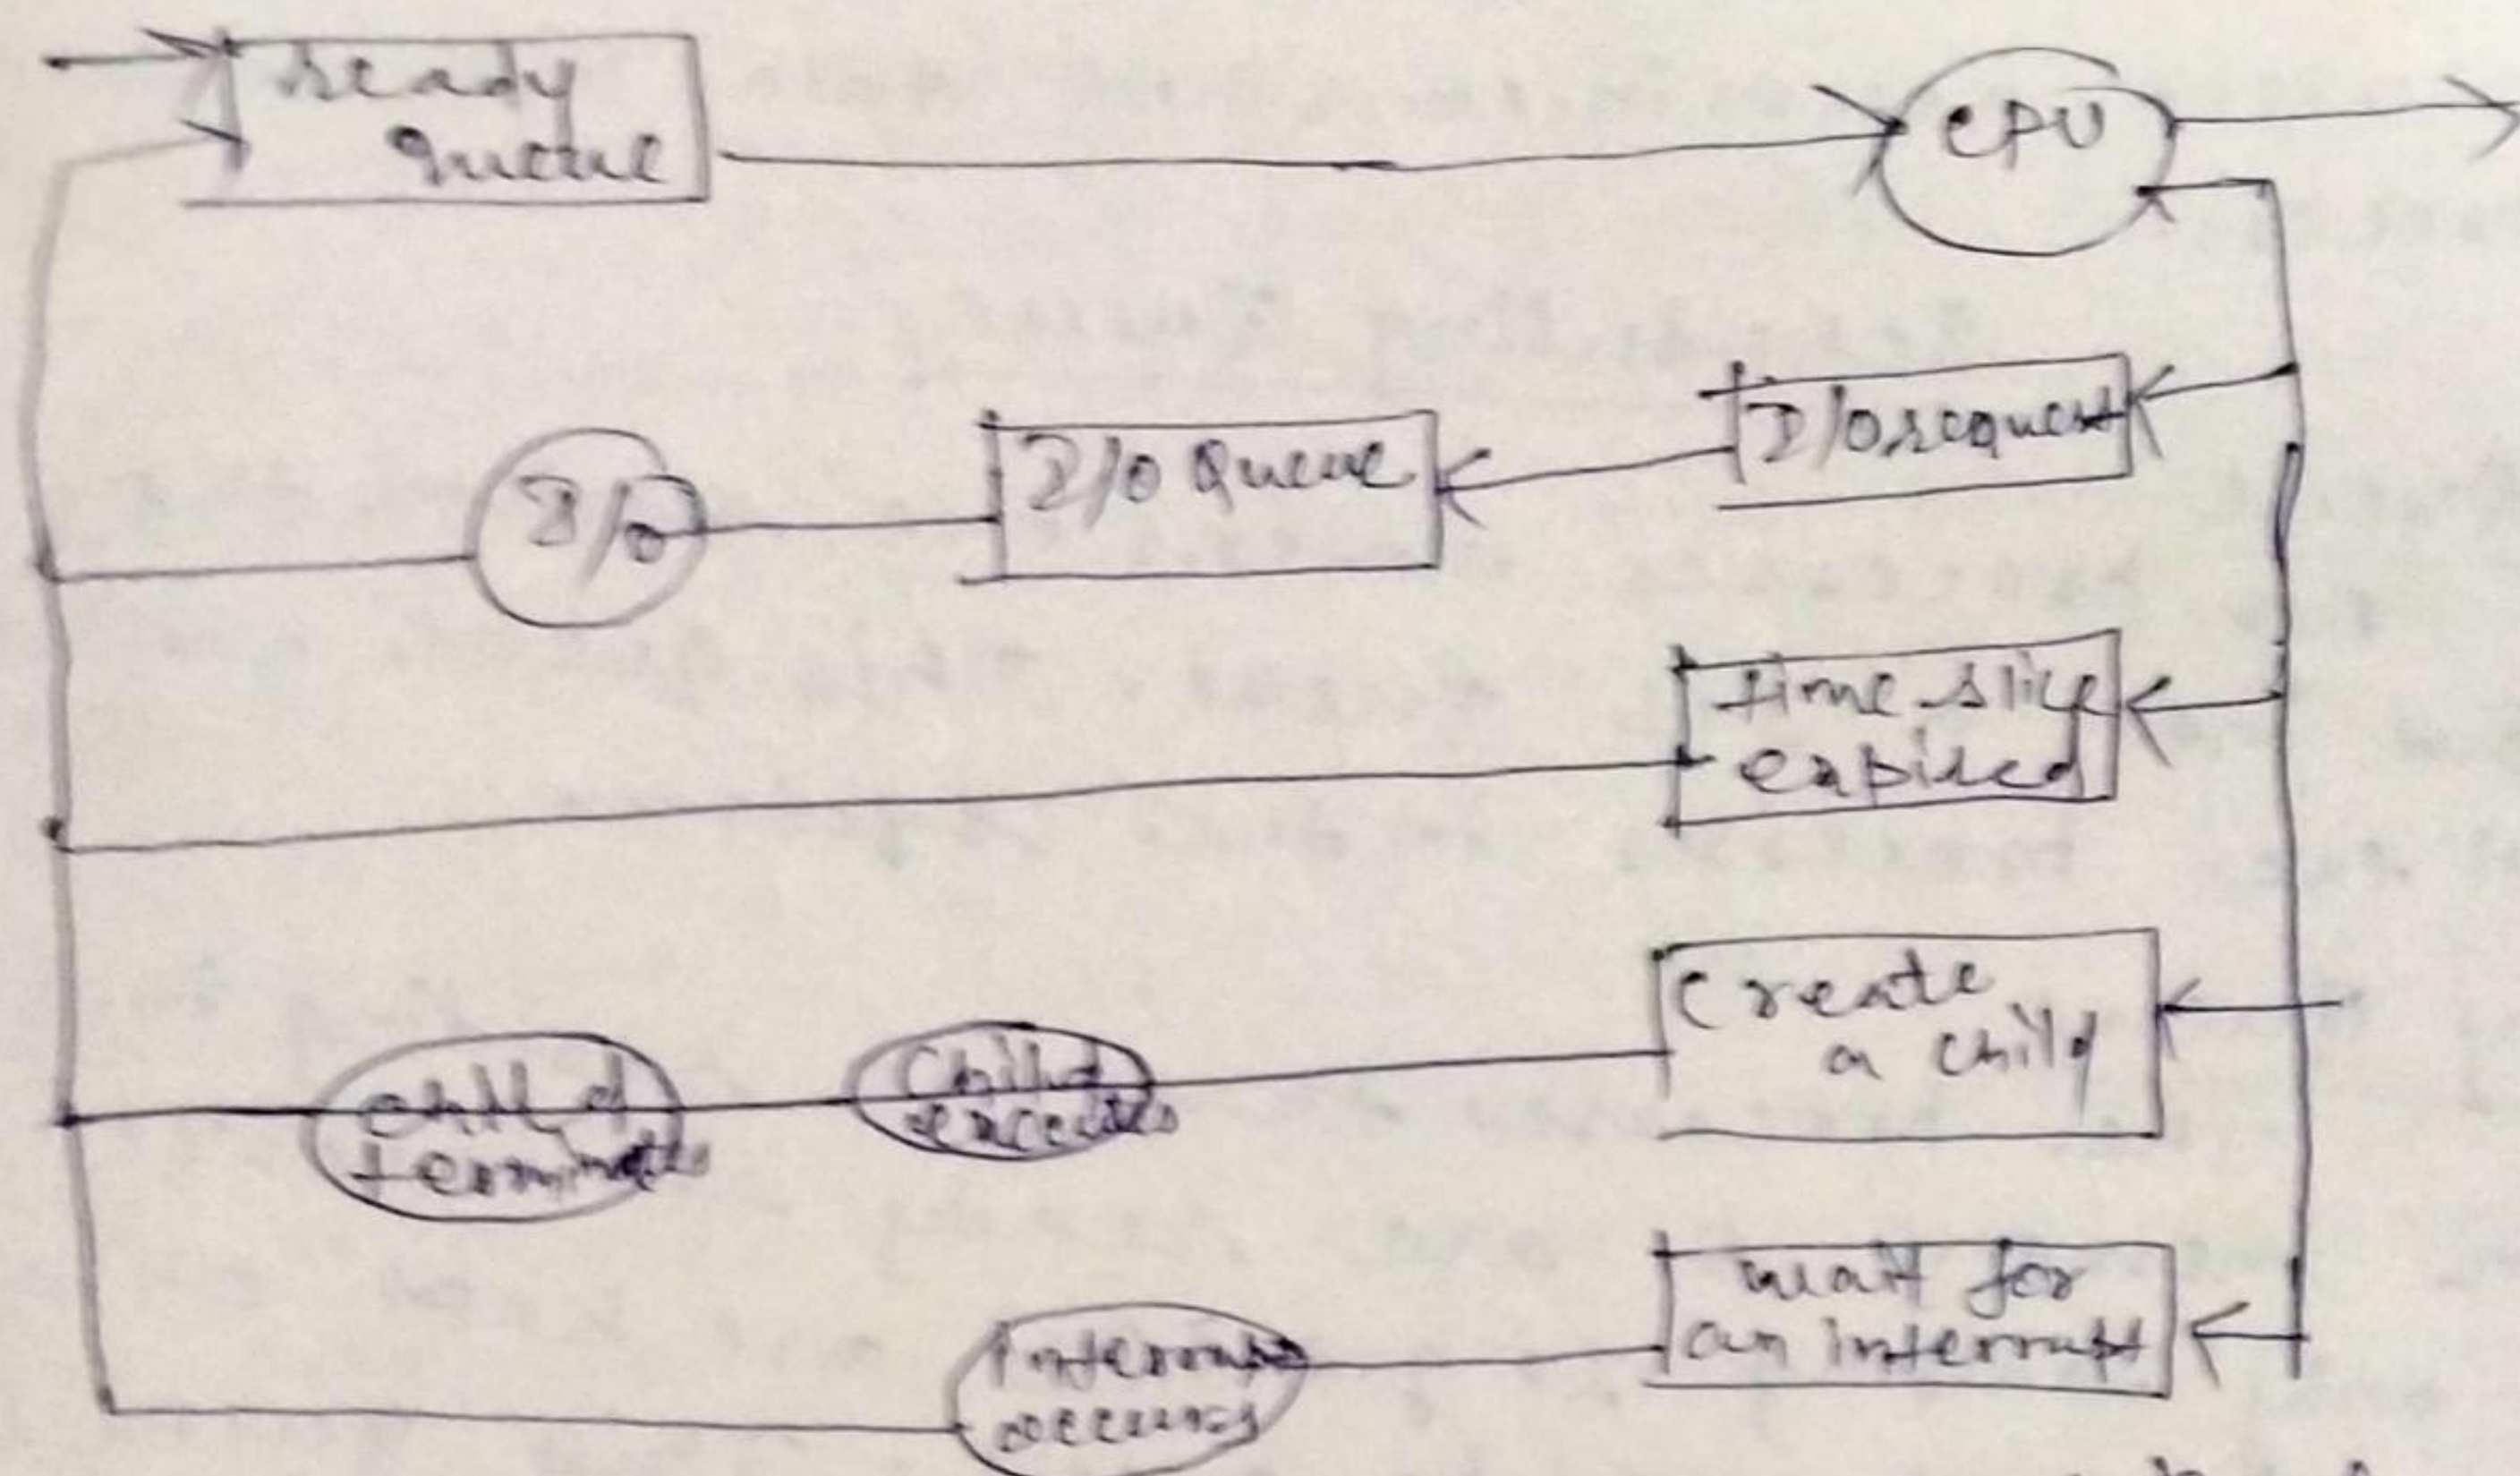 ready
Queue
CPU
I/O request
I/O Queue
I/O
time slice
expired
Create
a child
Child
executes
child
terminates
wait for
an interrupt
Interrupt
occurs